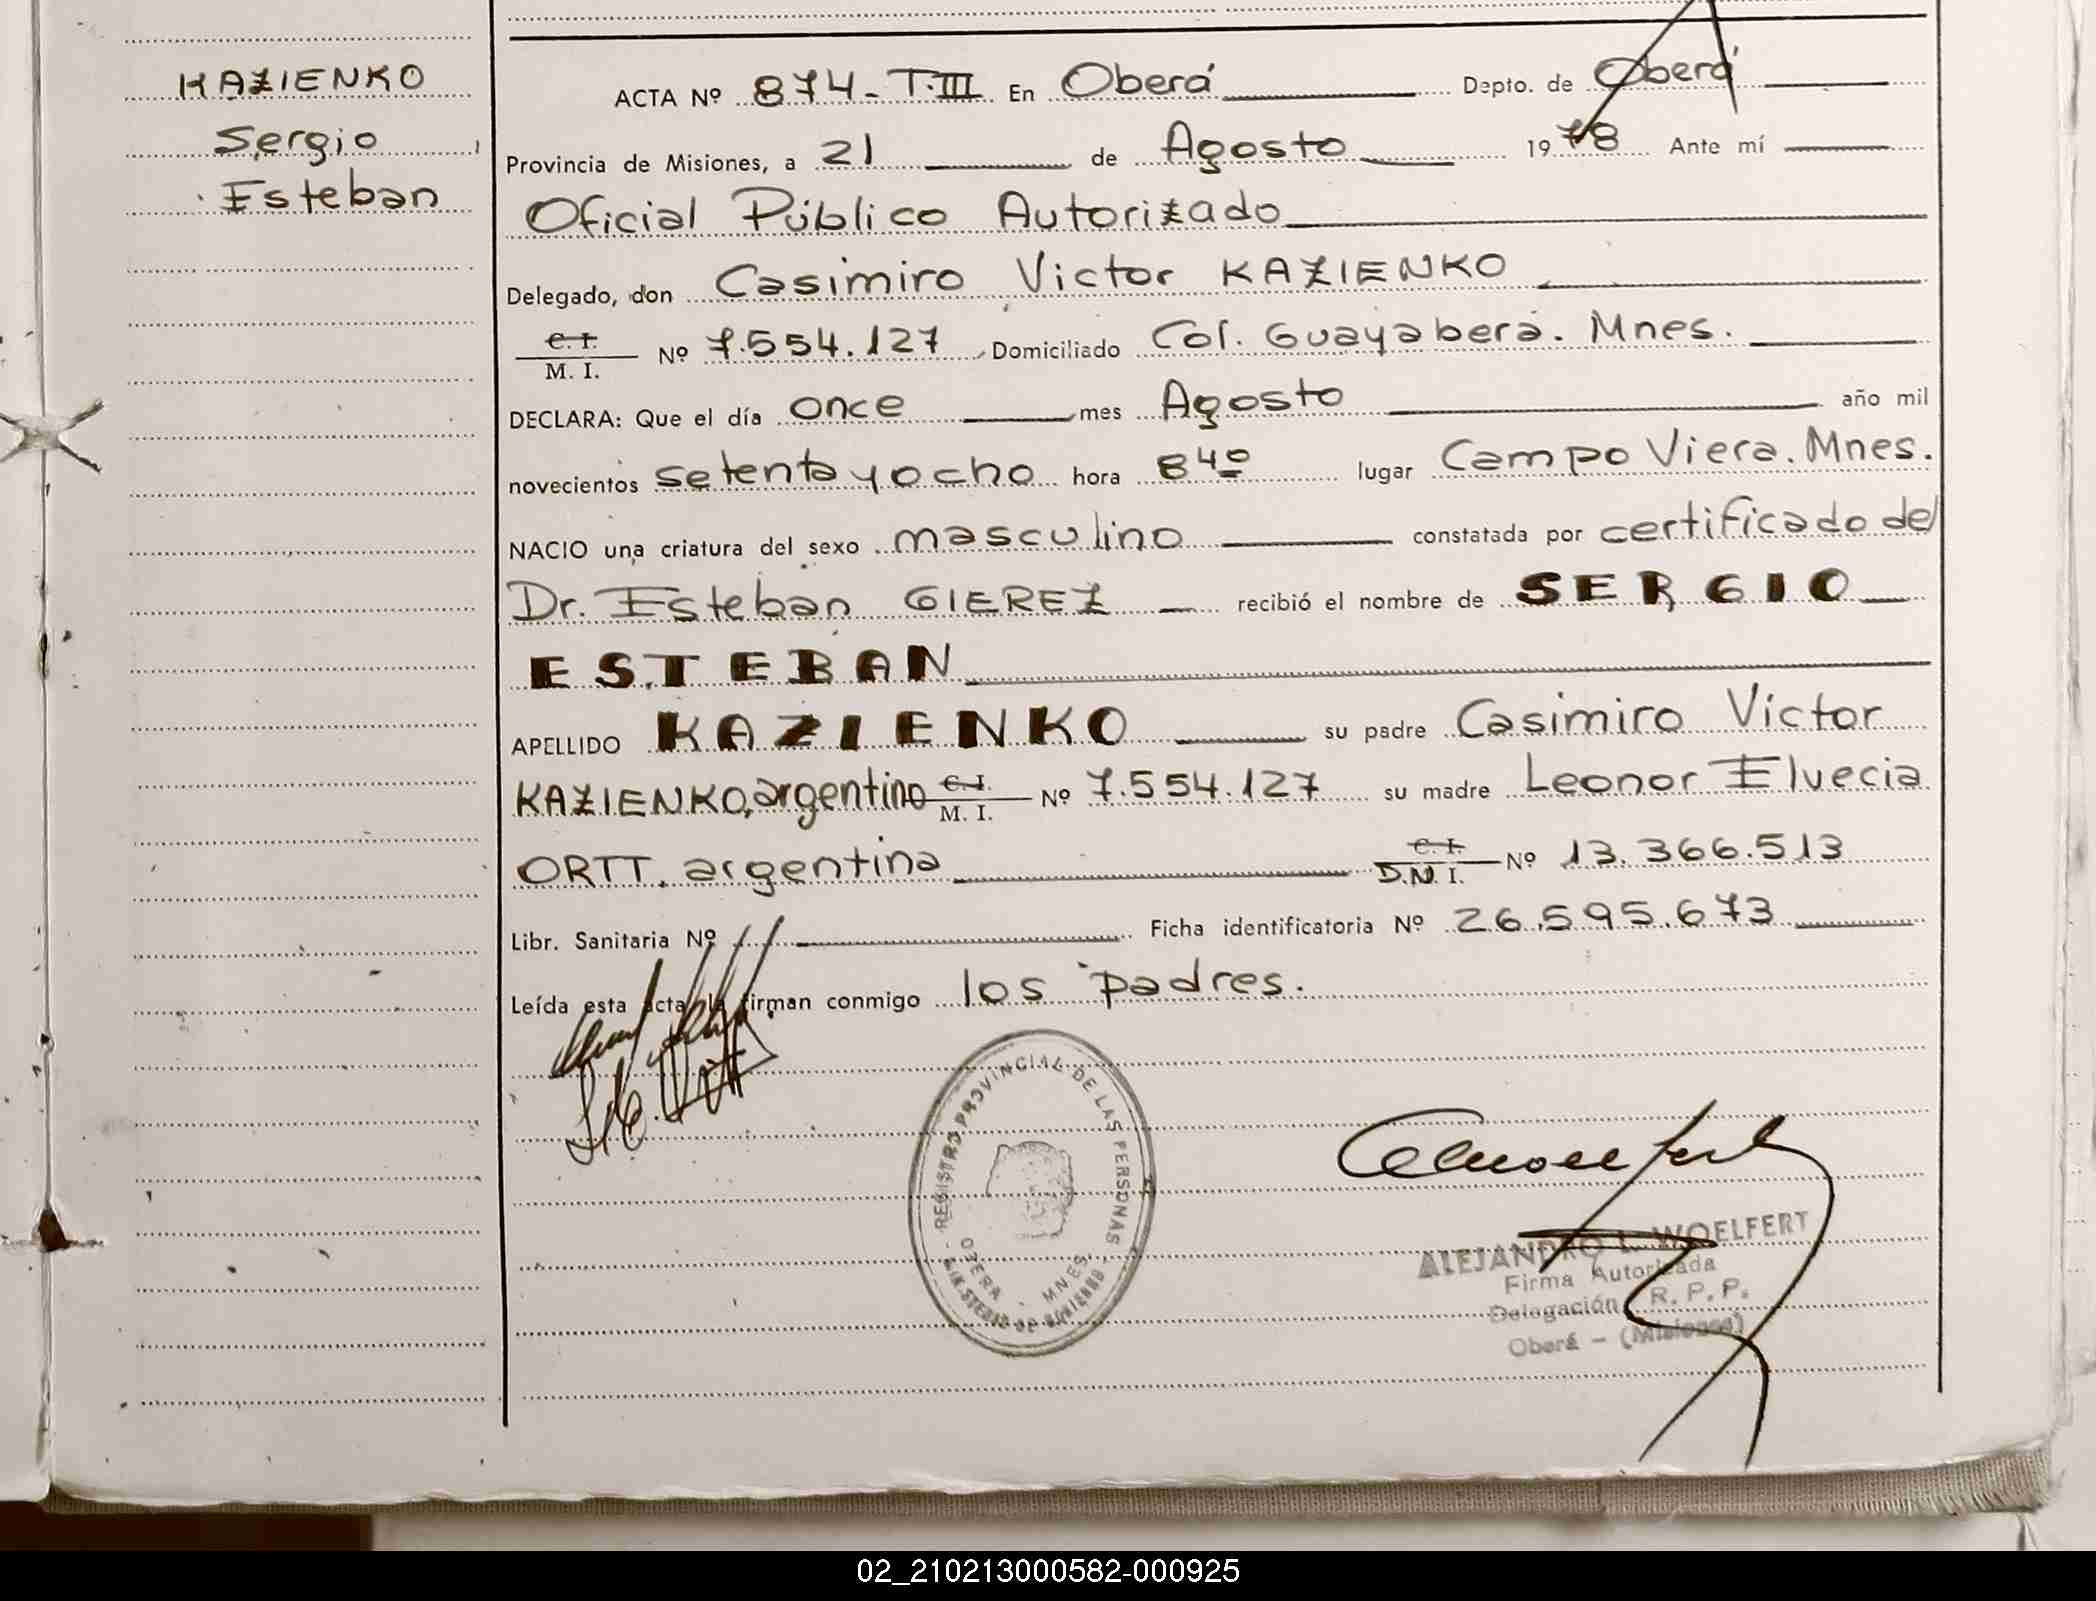 KAZIENKO
Sergio
Esteban
ACTA Nº 874 - T.III En Oberá Depto. de Oberá
Provincia de Misiones, a 21 de Agosto 1978 Ante mí
Oficial Público Autorizado
Delegado, don Casimiro Victor KAZIENKO
C. I.
M. I. Nº 7.554.127 Domiciliado Col. Guayabera. Mnes.
DECLARA: Que el día once mes Agosto año mil
novecientos setenta y ocho hora 8 40 lugar Campo Viera. Mnes.
NACIO una criatura del sexo masculino constatada por certificado del
Dr. Esteban GIEREZ recibió el nombre de SERGIO
ESTEBAN
APELLIDO KAZIENKO su padre Casimiro Victor
KAZIENKO, argentino C. I. M. I. Nº 7.554.127 su madre Leonor Elvecia
ORTT. argentina C. I. D.N.I. Nº 13.366.513
Libr. Sanitaria Nº Ficha identificatoria Nº 26.595.673
Leída esta acta la firman conmigo los padres.
REGISTRO PROVINCIAL DE LAS PERSONAS
OBERA - MNES.
ALEJANDRO L. WOELFERT
Firma Autorizada
Delegación R. P. P.
Oberá - (Misiones)
02_210213000582-000925